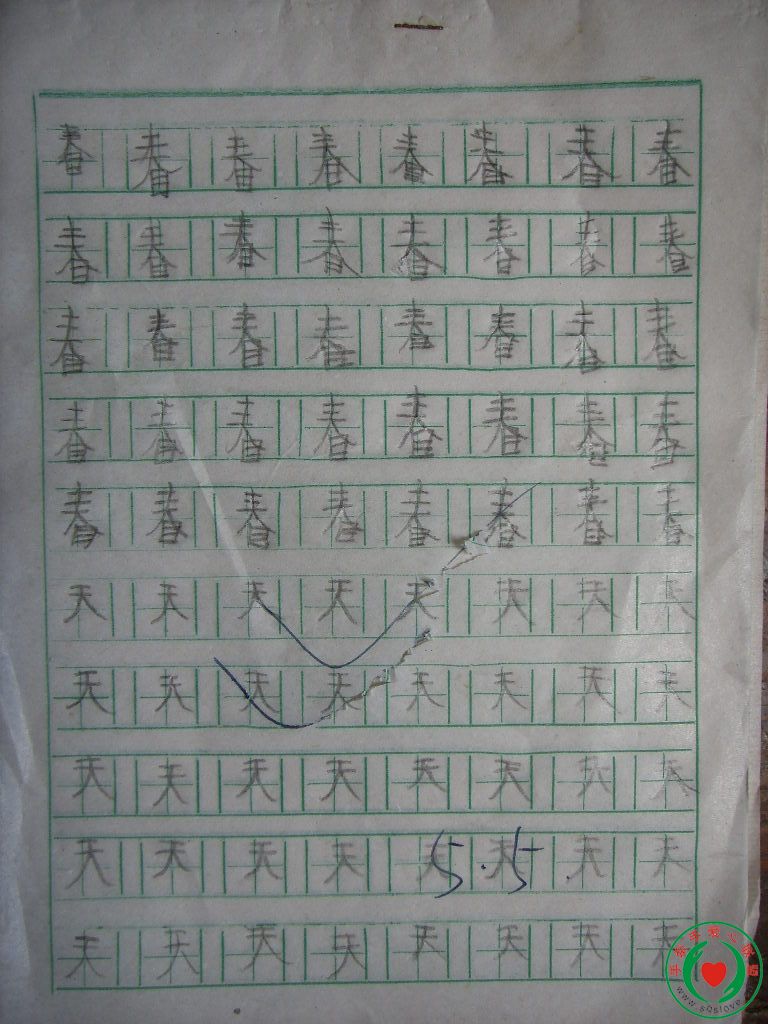 春春春春春春春春
春春春春春春春春
春春春春春春春春
春春春春春春春春
春春春春春春春春
天天天天天天天天
天天天天天天天天
天天天天天天天天
天天天天天天天天
5.5.
天天天天天天天天
www.sqslove